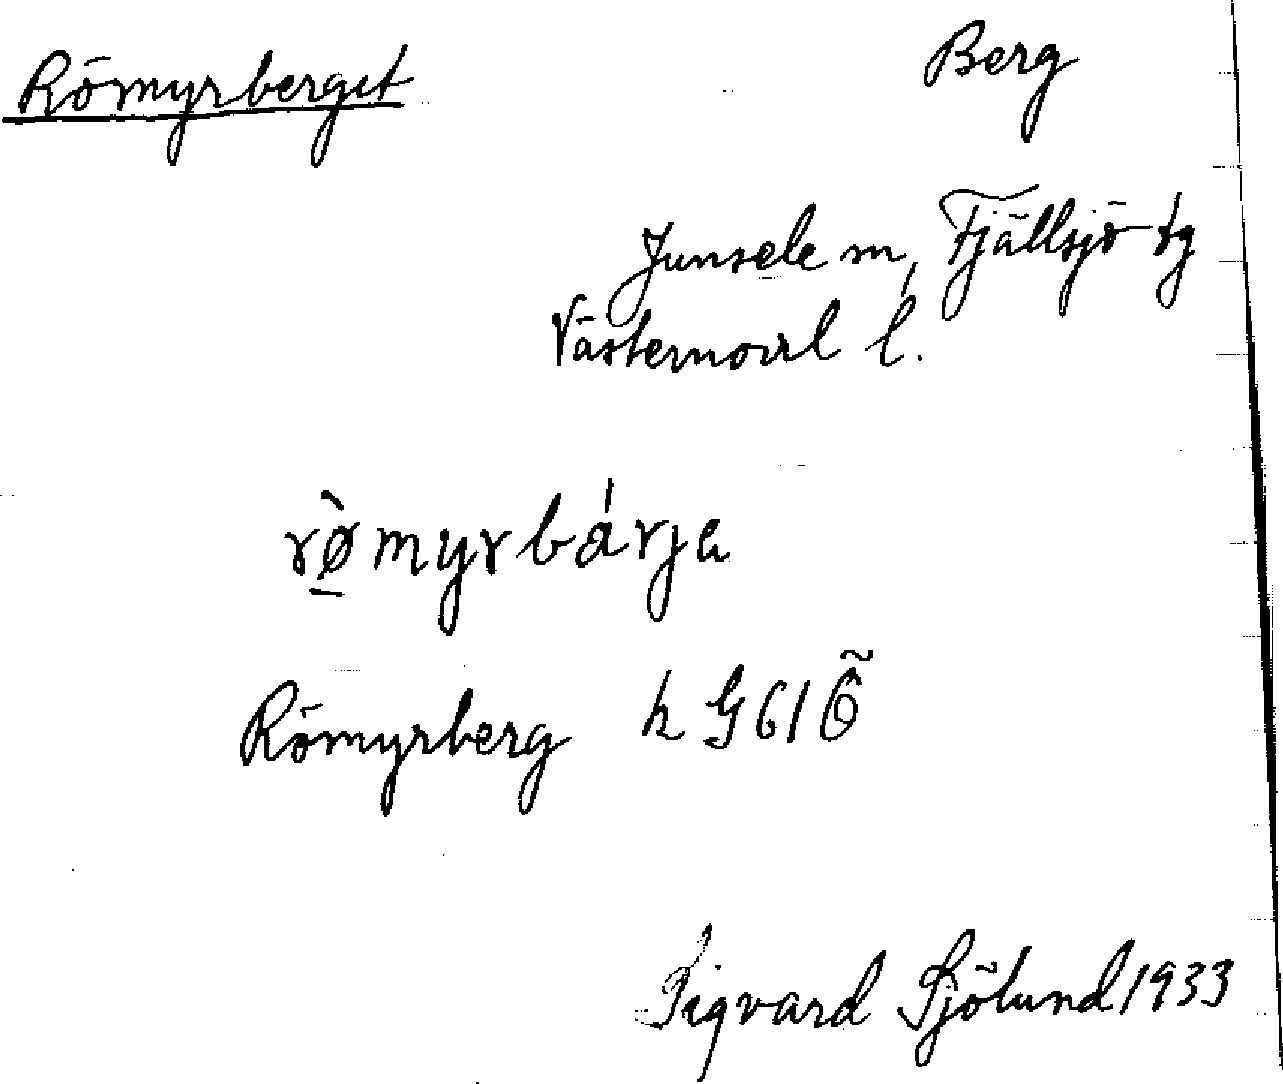 Römyrberget
Berg
Junsele m, Fjällsjö tg
Västernorrl l.
rø̀myrbárja
Römyrberg h G61
Sigvard Sjölund 1933